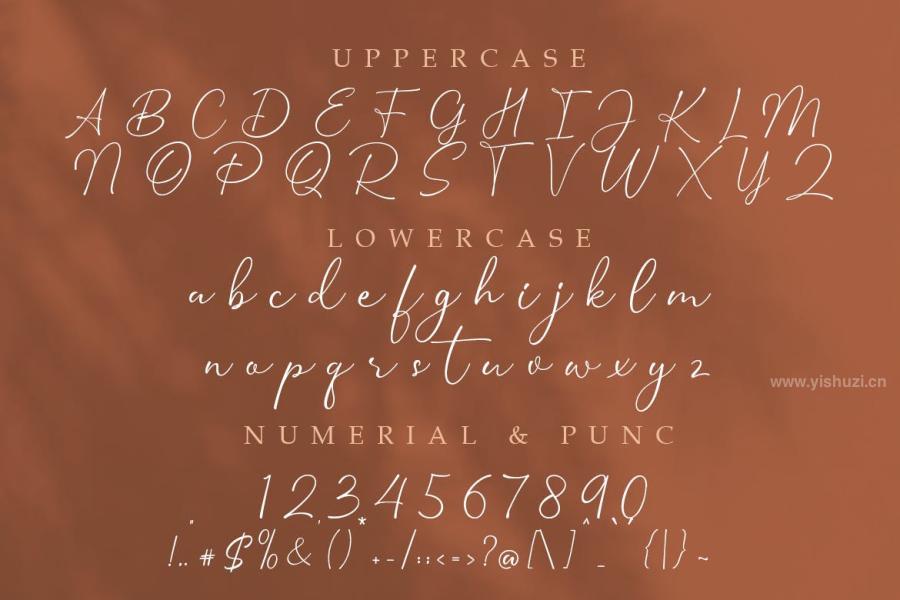 UPPERCASE
A B C D E F G H I J K L M
N O P Q R S T V W X Y Z
LOWERCASE
a b c d e f g h i j k l m
n o p q r s t u v w x y z
www.yishuzi.cn
NUMERIAL & PUNC
1 2 3 4 5 6 7 8 9 0
! . . # $ % & ( ) * + - / : ; < = > ? @ [ \ ] ^ _ ` { | } ~